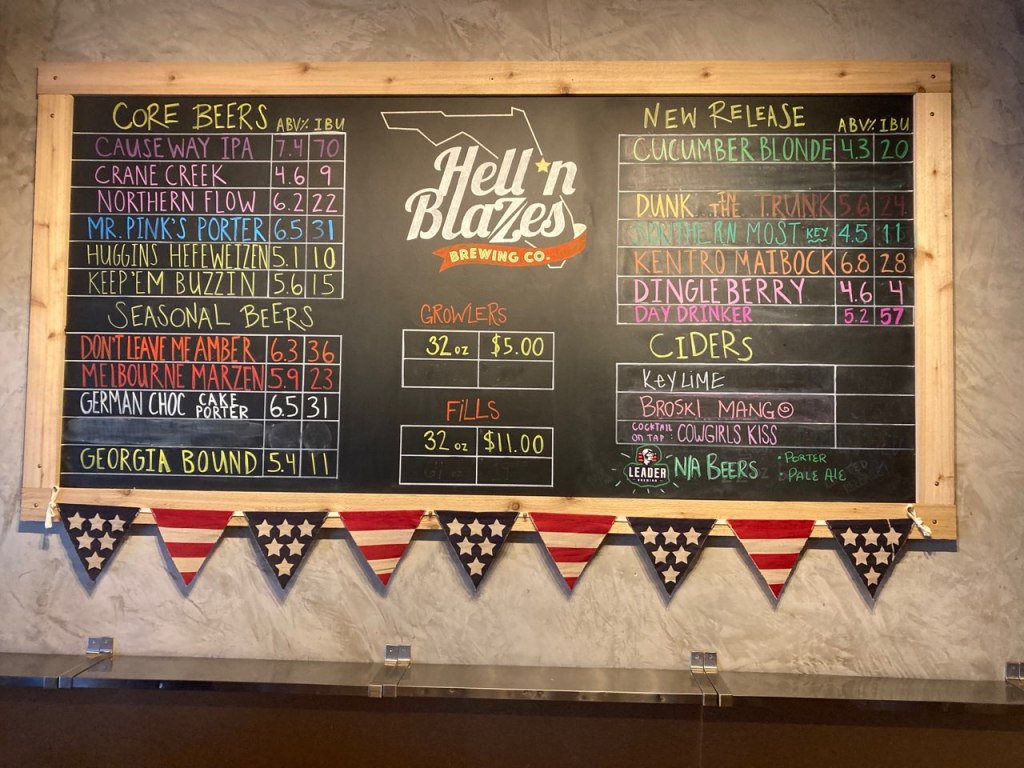 CORE BEERS ABV% IBU
CAUSEWAY IPA 7.4 70
CRANE CREEK 4.6 9
NORTHERN FLOW 6.2 22
MR. PINK'S PORTER 6.5 31
HUGGINS HEFEWEIZEN 5.1 10
KEEP'EM BUZZIN 5.6 15
SEASONAL BEERS
DON'T LEAVE ME AMBER 6.3 36
MELBOURNE MARZEN 5.9 23
GERMAN CHOC CAKE PORTER 6.5 31
GEORGIA BOUND 5.4 11
Hell 'n
Blazes
BREWING CO.
GROWLERS
32 oz $5.00
FILLS
32 oz $11.00
NEW RELEASE ABV% IBU
CUCUMBER BLONDE 4.3 20
DUNK IN THE TRUNK 5.6 24
SOUTHERN MOST KEY 4.5 11
KENTRO MAIBOCK 6.8 28
DINGLEBERRY 4.6 4
DAY DRINKER 5.2 57
CIDERS
KEY LIME
BROSKI MANGO
COCKTAIL ON TAP: COWGIRLS KISS
LEADER
N/A BEERS • PORTER
• PALE ALE